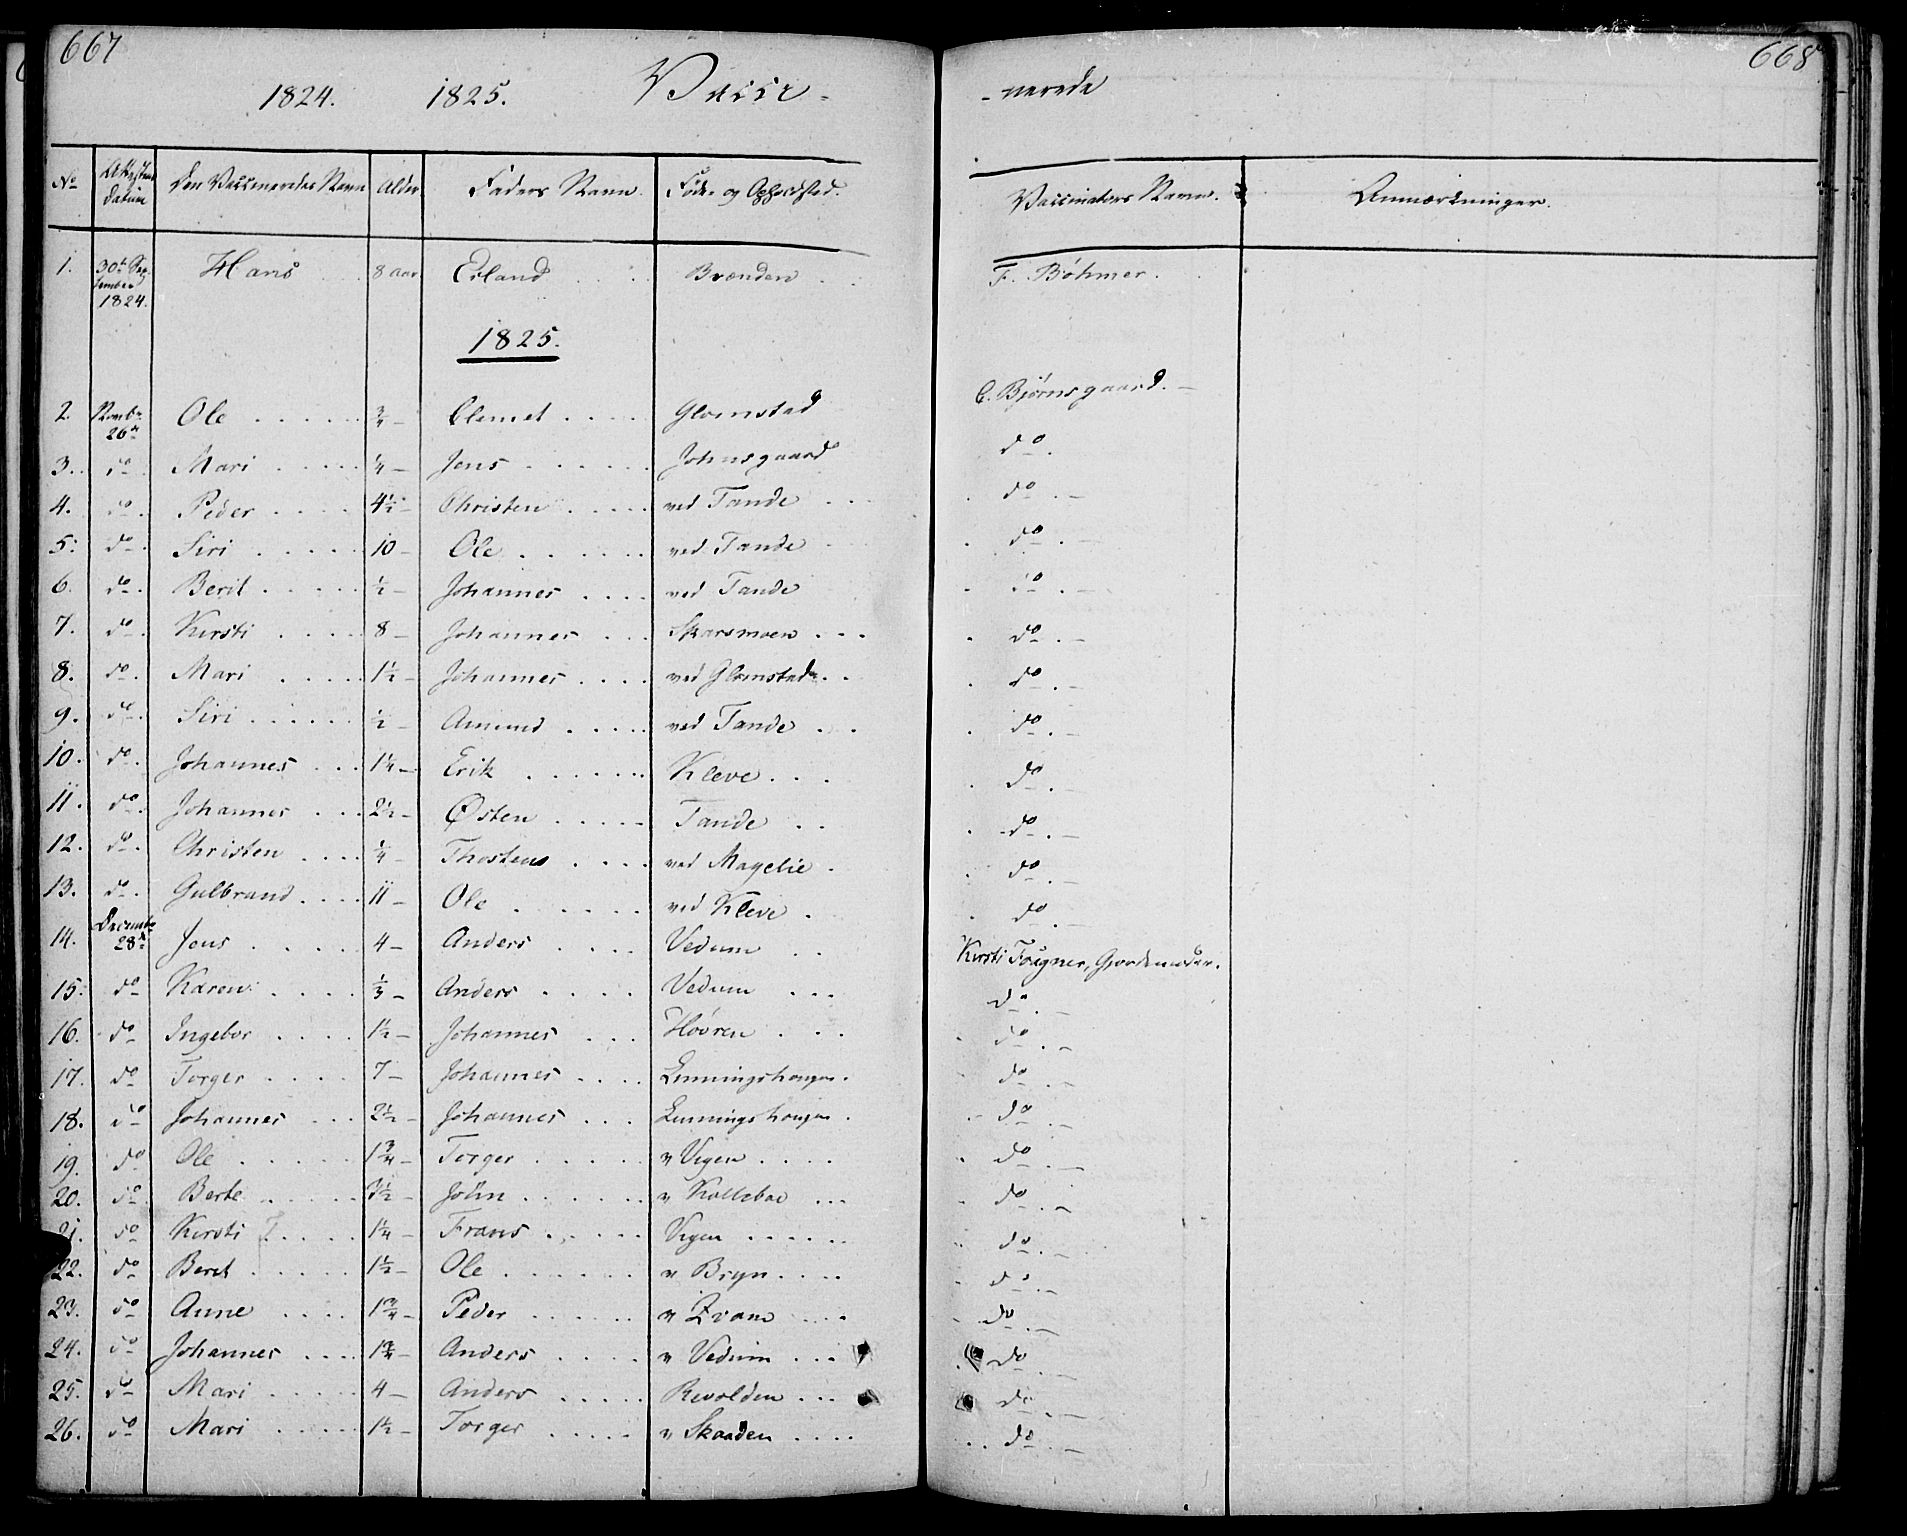 667
668
1824. 1825. Vacci- -nerede
No Attestens Datum Den Vaccineredes Navn Alder Faders Navn. Føde- og Opholdsted. Vaccinators Navn. Anmærkninger.
1. 30te September 1824. Hans 8 aar Erland Brænden F. Böhmer.
1825.
2. Novbr 26de Ole 3/4 - Clemet Glomstad C. Bjørnsgaard. -
3. do. Mari 1/4 - Jens Johnsgaard do.
4. do. Peder 4 1/2 - Christen ved Tande do. -
5. do. Siri 10 - Ole ved Tande do. -
6. do. Berit 1/2 - Johannes ved Tande do. -
7. do. Kirsti 8 - Johannes Skarsmoen do. -
8. do. Mari 1 1/2 - Johannes ved Glomstad do. -
9. do. Siri 1/2 - Amund ved Tande do. -
10. do. Johannes 1 1/4 - Erik Kleve do. -
11. do. Johannes 2 1/2 - Østen Tande do. -
12. do. Christen 1/4 - Thosten ved Magelie do. -
13. do. Gulbrand 11 - Ole ved Kleve do. -
14. Decembr 28de Jens 4 - Anders Vedum Kirsti Fougner, Gjordemoder.
15. do Karen 1/3 - Anders Vedum do. -
16. do Ingebor 1 1/2 - Johannes Hovren do. -
17. do Torger 7 - Johannes Lunningshougen do. -
18. do Johannes 2 1/2 - Johannes Lunningshougen do. -
19. do Ole 1 3/4 - Torger v Vigen do. -
20. do. Berte 3 1/2 - John v Kollsboe do. -
21. do Kirsti 1 1/4 - Frans Vigen do. -
22. do Berit 1 1/2 - Ole v Bryn do. -
23. do Anne 1 3/4 - Peder v Qvam do. -
24. do Johannes 1 3/4 - Anders v Vedum do. -
25. do Mari 4 - Anders Revolden do. -
26. do Mari 1 1/2 - Torger v Skaaden do. -